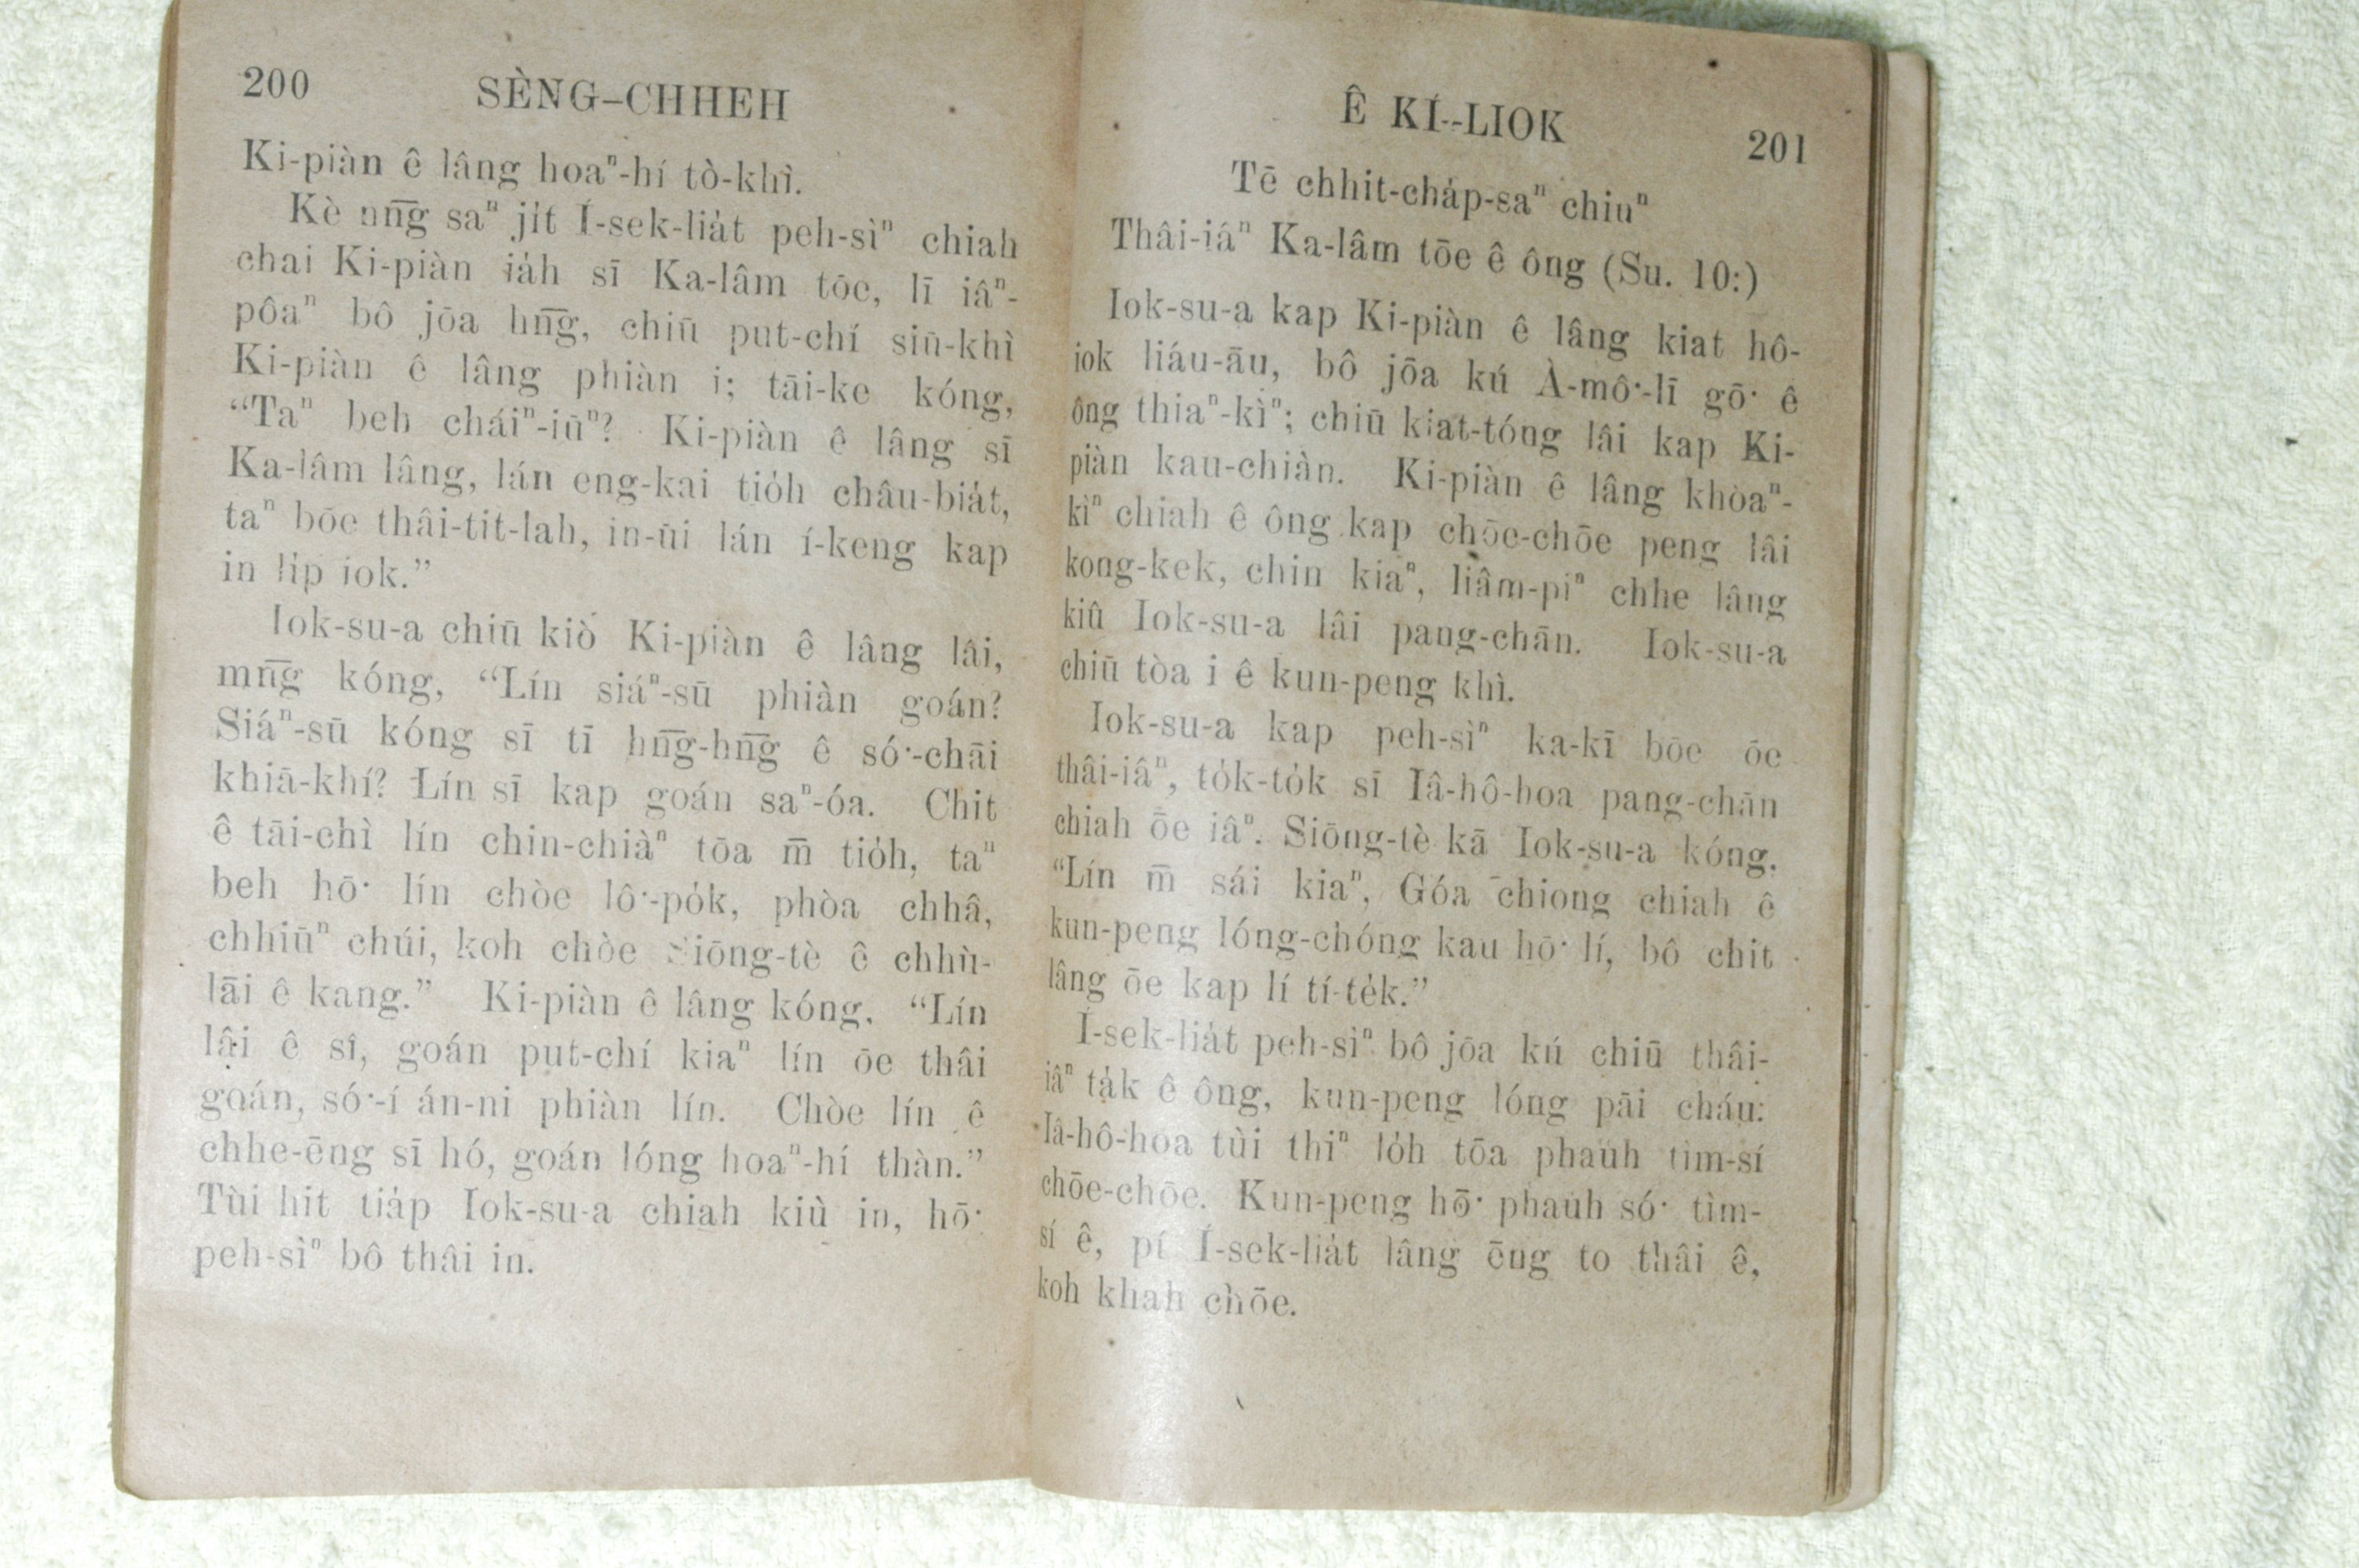 200 SÈNG–CHHEH
Ki-piàn ê lâng hoaⁿ-hí tò-khì.
Kè nn̄g saⁿ ji̍t Í-sek-lia̍t peh-sìⁿ chiah
chai Ki-piàn ia̍h sī Ka-lâm tōe, lī iâⁿ-
pôaⁿ bô jōa hn̄g, chiū put-chí siū-khì
Ki-piàn ê lâng phiàn i; tāi-ke kóng,
“Taⁿ beh cháiⁿ-iūⁿ? Ki-piàn ê lâng sī
Ka-lâm lâng, lán eng-kai tio̍h châu-bia̍t,
taⁿ bōe thâi-tit-lah, in-ūi lán í-keng kap
in li̍p iok.”
Iok-su-a chiū kiò Ki-piàn ê lâng lâi,
mn̄g kóng, “Lín siáⁿ-sū phiàn goán?
Siáⁿ-sū kóng sī tī hn̄g-hn̄g ê só͘-chāi
khiā-khí? Lín sī kap goán saⁿ-óa. Chit
ê tāi-chì lín chin-chiàⁿ tōa m̄ tio̍h, taⁿ
beh hō͘ lín chòe lô͘-po̍k, phòa chhâ,
chhiūⁿ chúi, koh chòe Siōng-tè ê chhù-
lāi ê kang.” Ki-piàn ê lâng kóng, “Lín
lâi ê sî, goán put-chí kiaⁿ lín ōe thâi
goán, só͘-í án-ni phiàn lín. Chòe lín ê
chhe-ēng sī hó, goán lóng hoaⁿ-hí thàn.”
Tùi hit tia̍p Iok-su-a chiah kiù in, hō͘
peh-sìⁿ bô thâi in.
Ê KÍ-LIOK 201
Tē chhit-cha̍p-saⁿ chiuⁿ
Thâi-iâⁿ Ka-lâm tōe ê ông (Su. 10:)
Iok-su-a kap Ki-piàn ê lâng kiat hô-
iok liáu-āu, bô jōa kú À-mô͘-lī gō͘ ê
ông thiaⁿ-kìⁿ; chiū kiat-tóng lâi kap Ki-
piàn kau-chiàn. Ki-piàn ê lâng khòaⁿ-
kìⁿ chiah ê ông kap chōe-chōe peng lâi
kong-kek, chin kiaⁿ, liâm-piⁿ chhe lâng
kiû Iok-su-a lâi pang-chān. Iok-su-a
chiū tòa i ê kun-peng khì.
Iok-su-a kap peh-sìⁿ ka-kī bōe ōe
thâi-iâⁿ, to̍k-to̍k sī Iâ-hô-hoa pang-chān
chiah ōe iâⁿ. Siōng-tè kā Iok-su-a kóng,
“Lín m̄ sái kiaⁿ, Góa chiong chiah ê
kun-peng lóng-chóng kau hō͘ lí, bô chit
lâng ōe kap lí tí-te̍k.”
Í-sek-lia̍t peh-sìⁿ bô jōa kú chiū thâi-
iâⁿ ta̍k ê ông, kun-peng lóng pāi cháu:
Iâ-hô-hoa tùi thiⁿ lo̍h tōa phau̍h tìm-sí
chōe-chōe. Kun-peng hō͘ phau̍h só͘ tìm-
sí ê, pí Í-sek-lia̍t lâng ēng to thâi ê,
koh khah chōe.